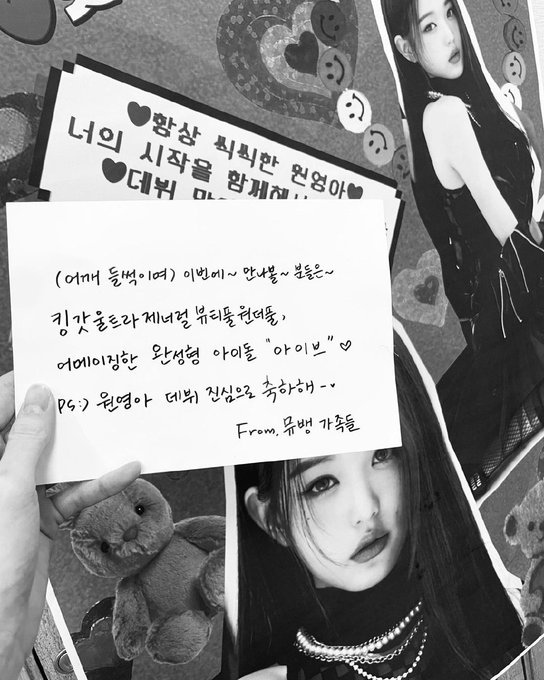 ♥항상 씩씩한 원영아♥
너의 시작을 함께해서
♥데뷔
(어깨 들썩이며) 이번에~ 만나볼~ 분들은~
킹갓울트라제너럴 뷰티풀원더풀,
어메이징한 완성형 아이돌 "아이브"♡
PS:) 원영아 데뷔 진심으로 축하해-♥
From. 뮤뱅 가족들